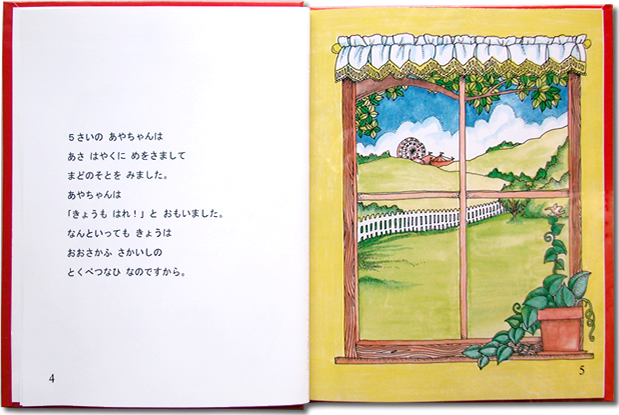 5さいの あやちゃんは
あさ はやくに めをさまして
まどのそとを みました。
あやちゃんは
「きょうも はれ！」と おもいました。
なんといっても きょうは
おおさかふ さかいしの
とくべつなひ なのですから。
4
5